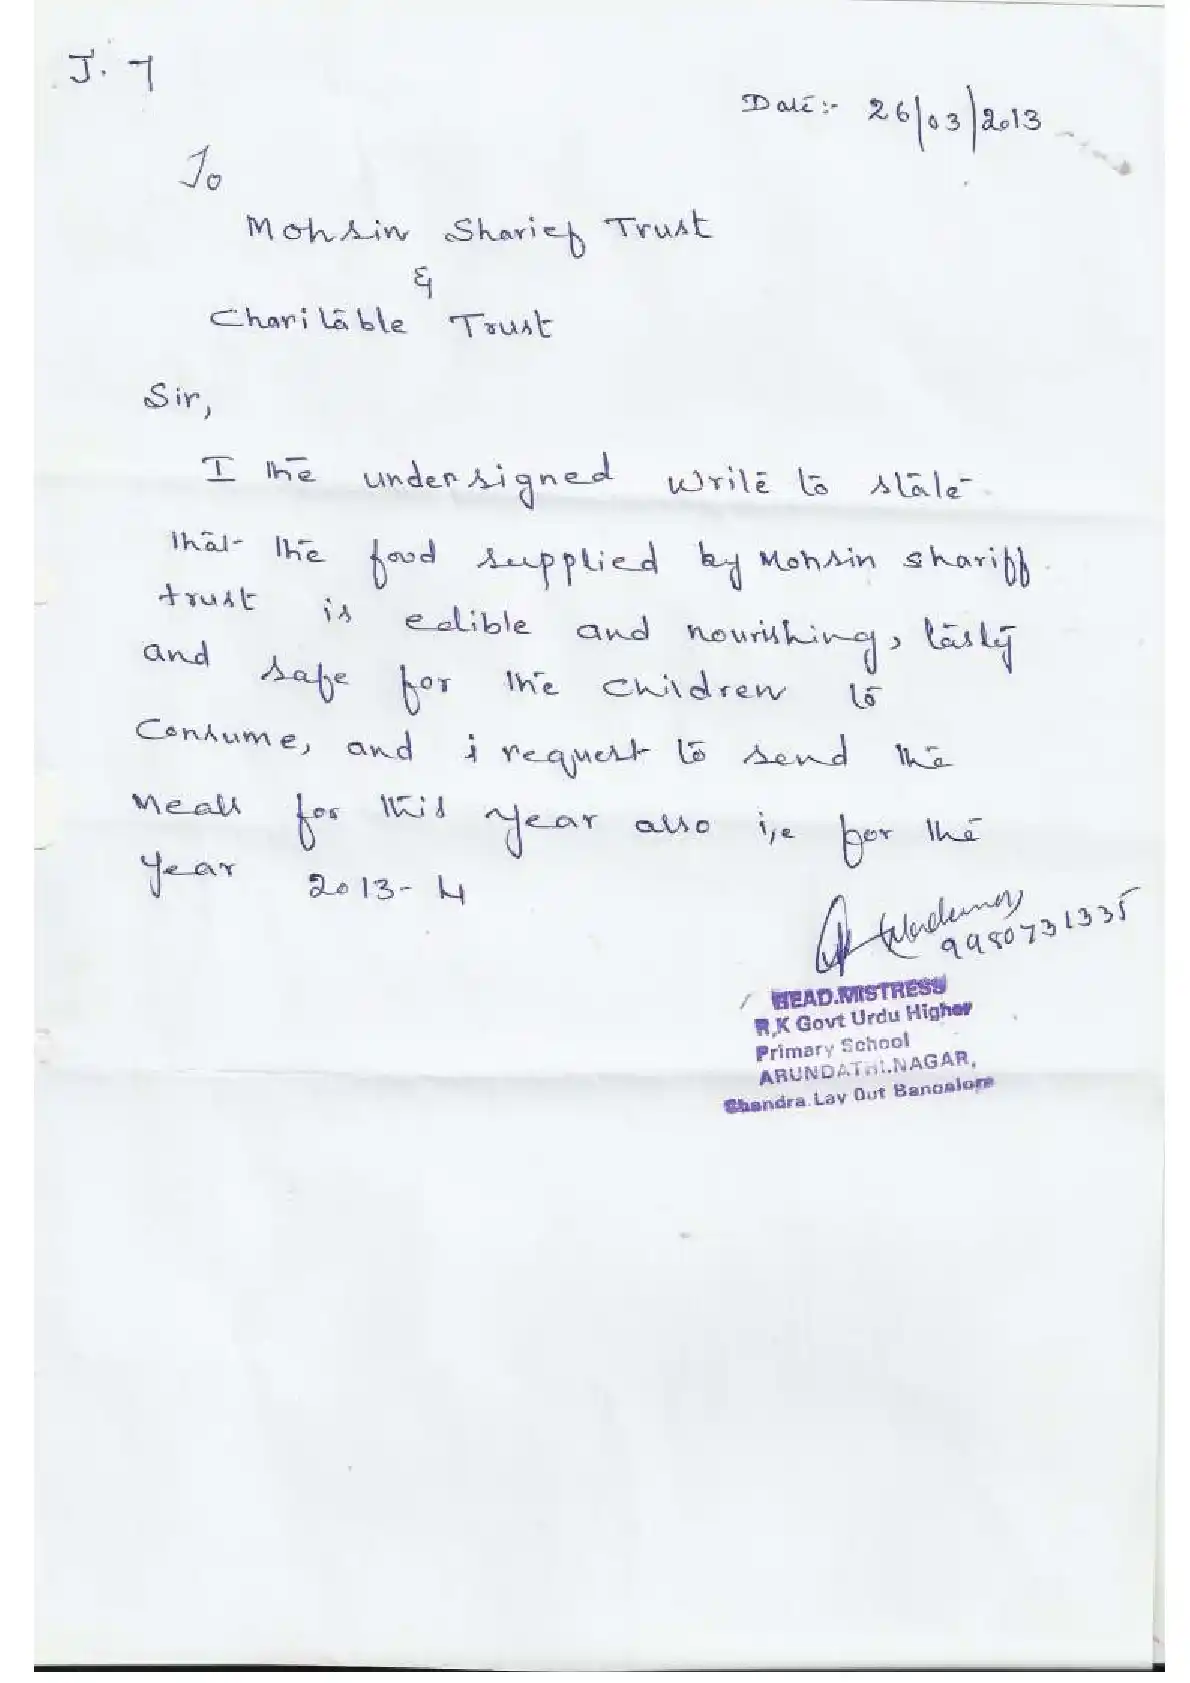 J. 7
Date:- 26/03/2013
To
Mohsin Sharief Trust
&
Charitable Trust
Sir,
I the undersigned write to state
that the food supplied by Mohsin shariff
trust is edible and nourishing, tasty
and safe for the children to
Consume, and i request to send the
Meals for this year also i,e for the
year 2013-4
9980731335
HEAD.MISTRESS
R,K Govt Urdu Higher
Primary School
ARUNDATHI.NAGAR,
Chandra.Lay Out Bangalore